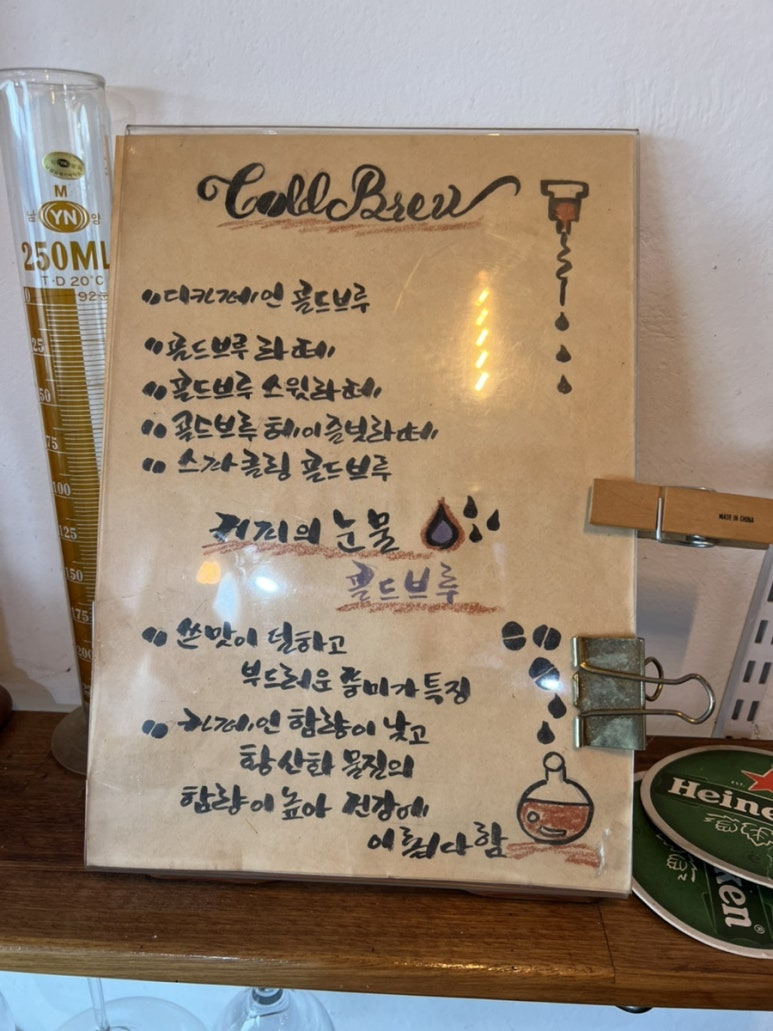 Cold Brew
디카페인 콜드브루
콜드브루 라떼
콜드브루 스윗라떼
콜드브루 헤이즐넛라떼
스파클링 콜드브루
커피의 눈물
콜드브루
쓴맛이 덜하고
부드러운 풍미가 특징
카페인 함량이 낮고
항산화 물질의
함량이 높아 건강에
이롭다 함
M
남 YN 양
250ML
T·D 20°C
25
50
75
100
125
150
175
200
MADE IN CHINA
Heine
ken